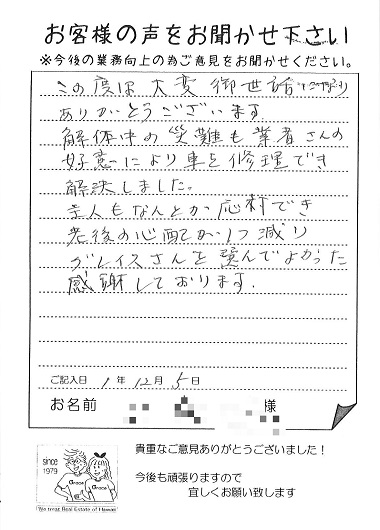 お客様の声をお聞かせ下さい
※今後の業務向上の為ご意見をお聞かせください。
この度は大変御世話になり
ありがとうございます。
解体中の災難も業者さんの
好意により車を修理でき
解決しました。
主人もなんとか応対でき
老後の心配が1つ減り
グレイスさんを選んでよかった
感謝しております。
ご記入日 1年 12月 5日
お名前 様
貴重なご意見ありがとうございました!
今後も頑張りますので
宜しくお願い致します
since
1979
Grace
Grace
We treat Real Estate of Hawaii